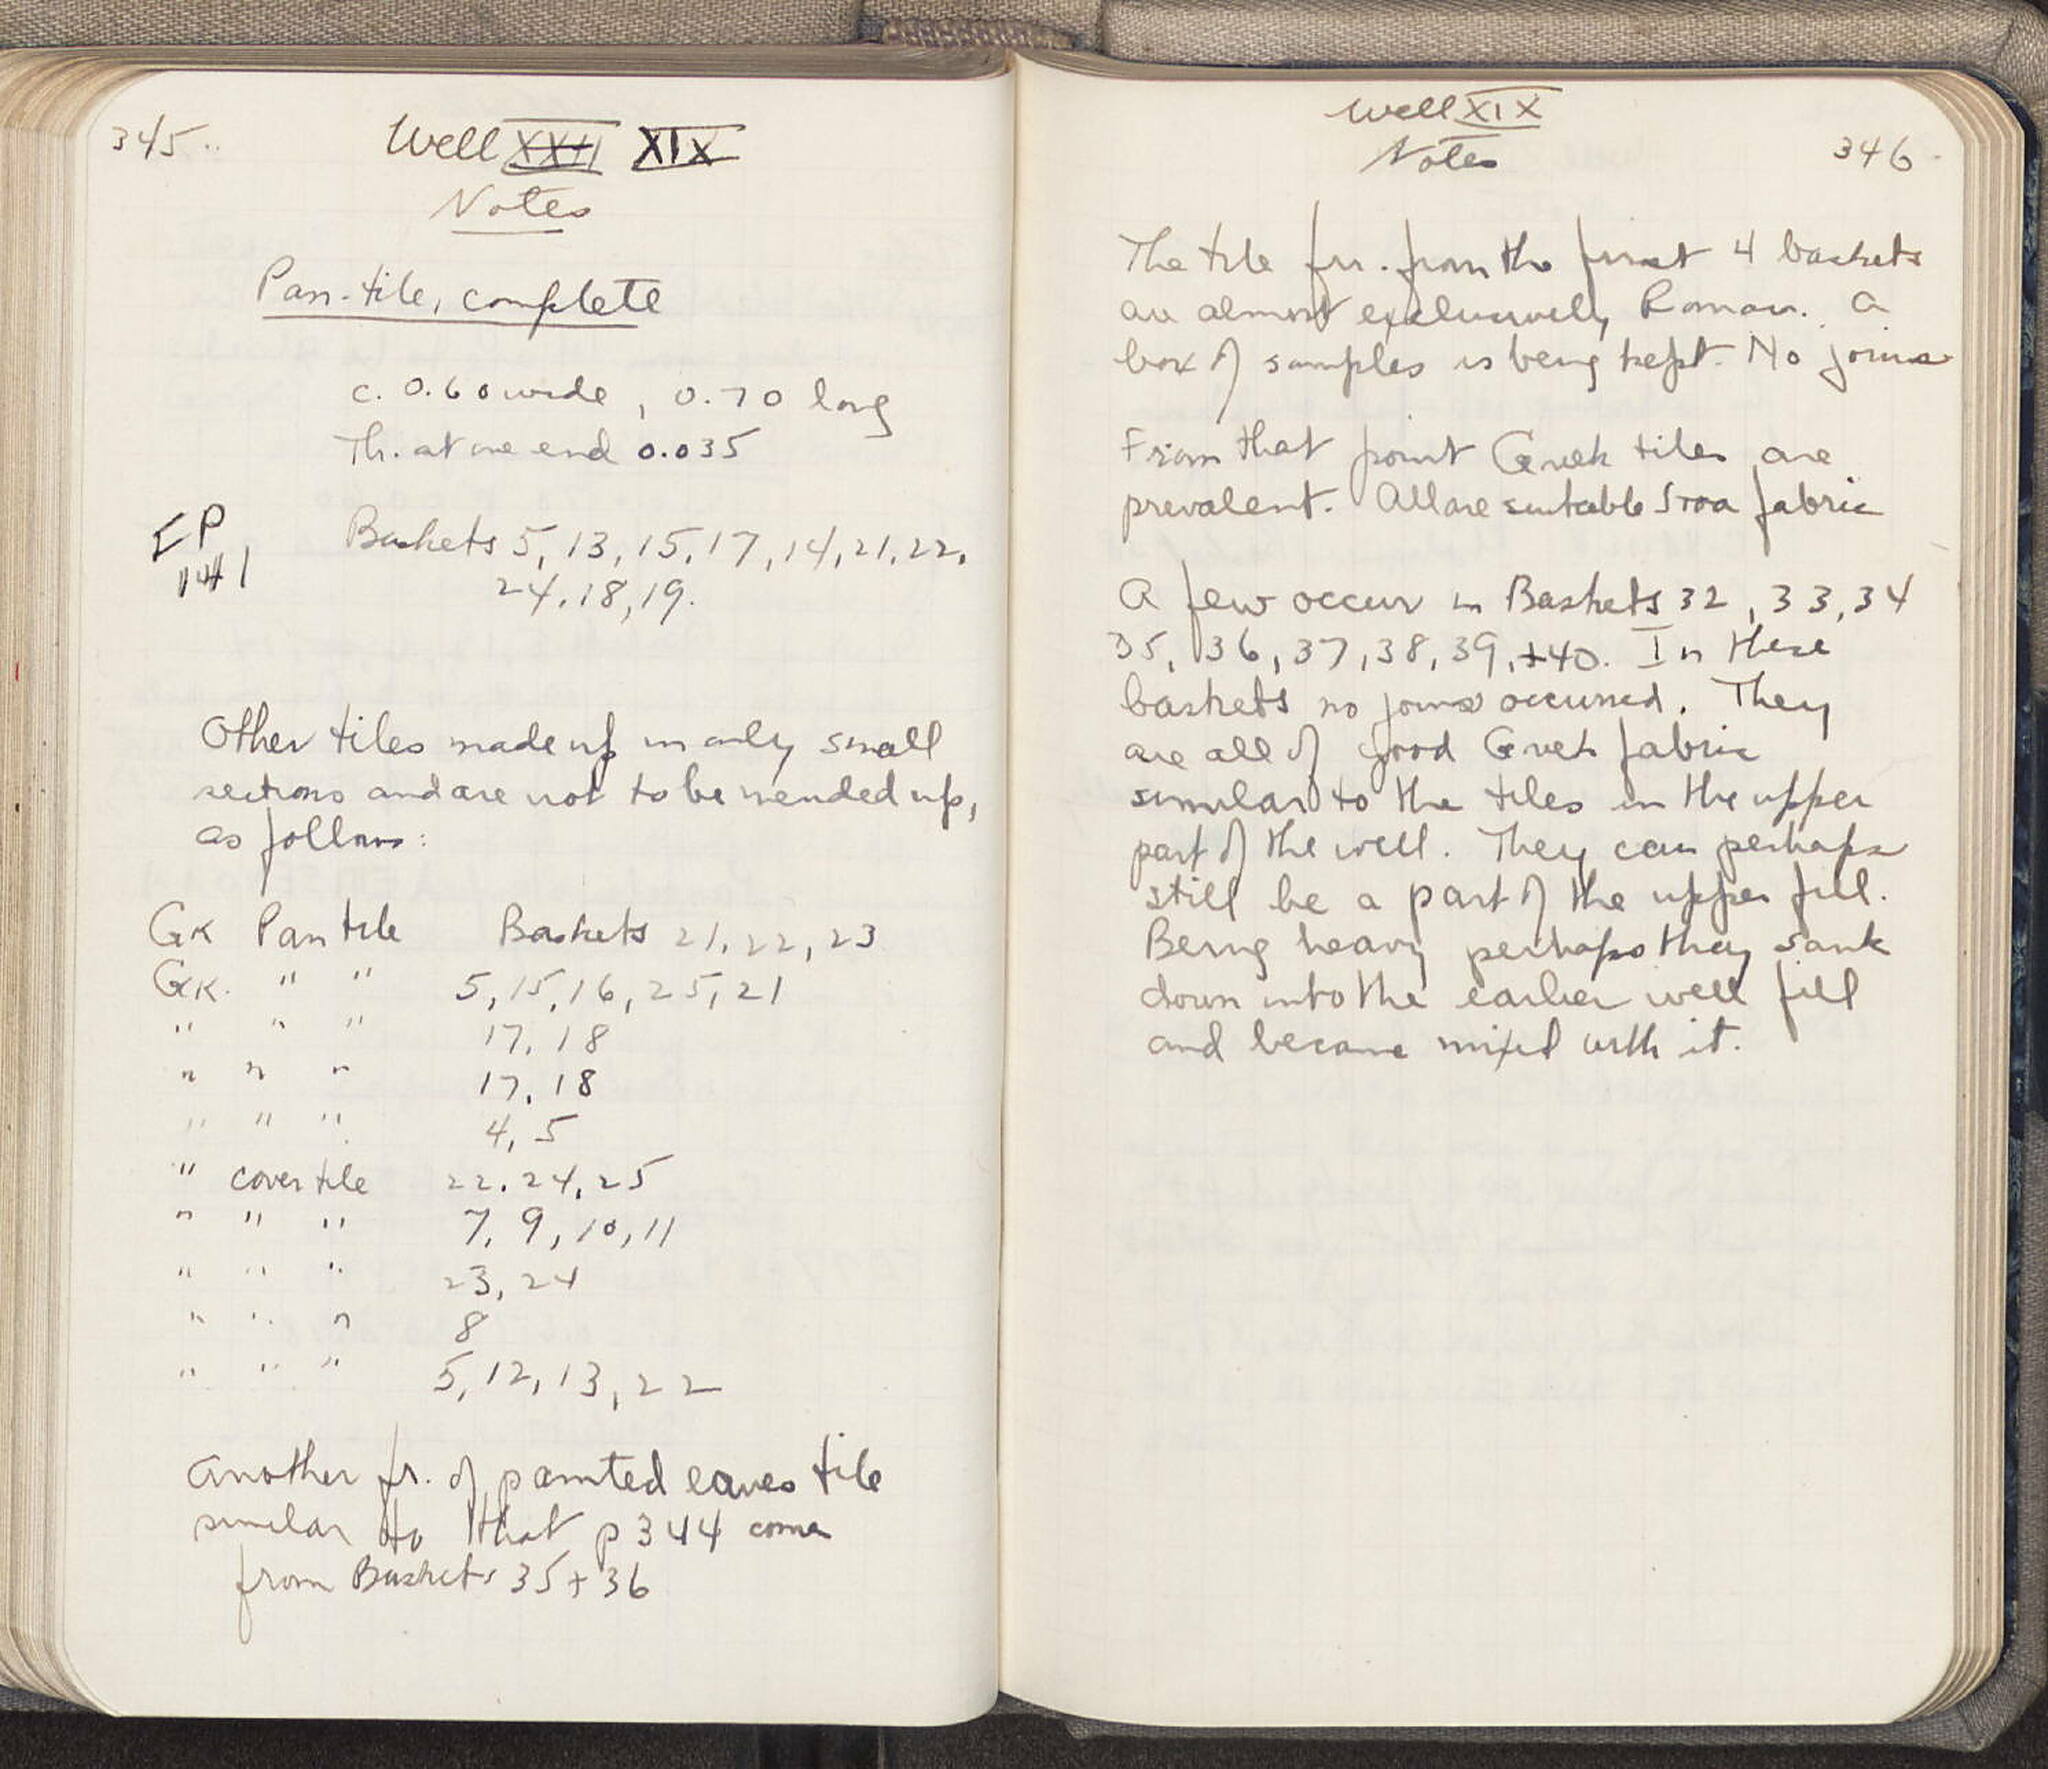 345
Well XXII XIX
Notes
Pan-tile, complete
c. 0.60 wide, 0.70 long
Th. at one end 0.035
FP
Baskets 5, 13, 15, 17, 14, 21, 22,
24, 18, 19.
Other tiles made up in only small
sections and are not to be mended up,
as follows:
Gk Pan tile Baskets 21, 22, 23
Gk. " " 5, 15, 16, 25, 21
" " " 17, 18
" " " 17, 18
" " " 4, 5
" cover tile 22, 24, 25
" " " 7, 9, 10, 11
" " " 23, 24
" " " 8
" " " 5, 12, 13, 22
Another fr. of painted eaves tile
similar to that p 344 come
from Baskets 35 + 36
Well XIX
Notes
346
The tile frr. from the first 4 baskets
are almost exclusively Roman. A
box of samples is being kept. No joins
From that point Greek tiles are
prevalent. All are suitable Stoa fabric
A few occur in Baskets 32, 33, 34
35, 36, 37, 38, 39, + 40. In these
baskets no joins occurred. They
are all of good Greek fabric
similar to the tiles in the upper
part of the well. They can perhaps
still be a part of the upper fill.
Being heavy perhaps they sank
down into the earlier well fill
and became mixed with it.